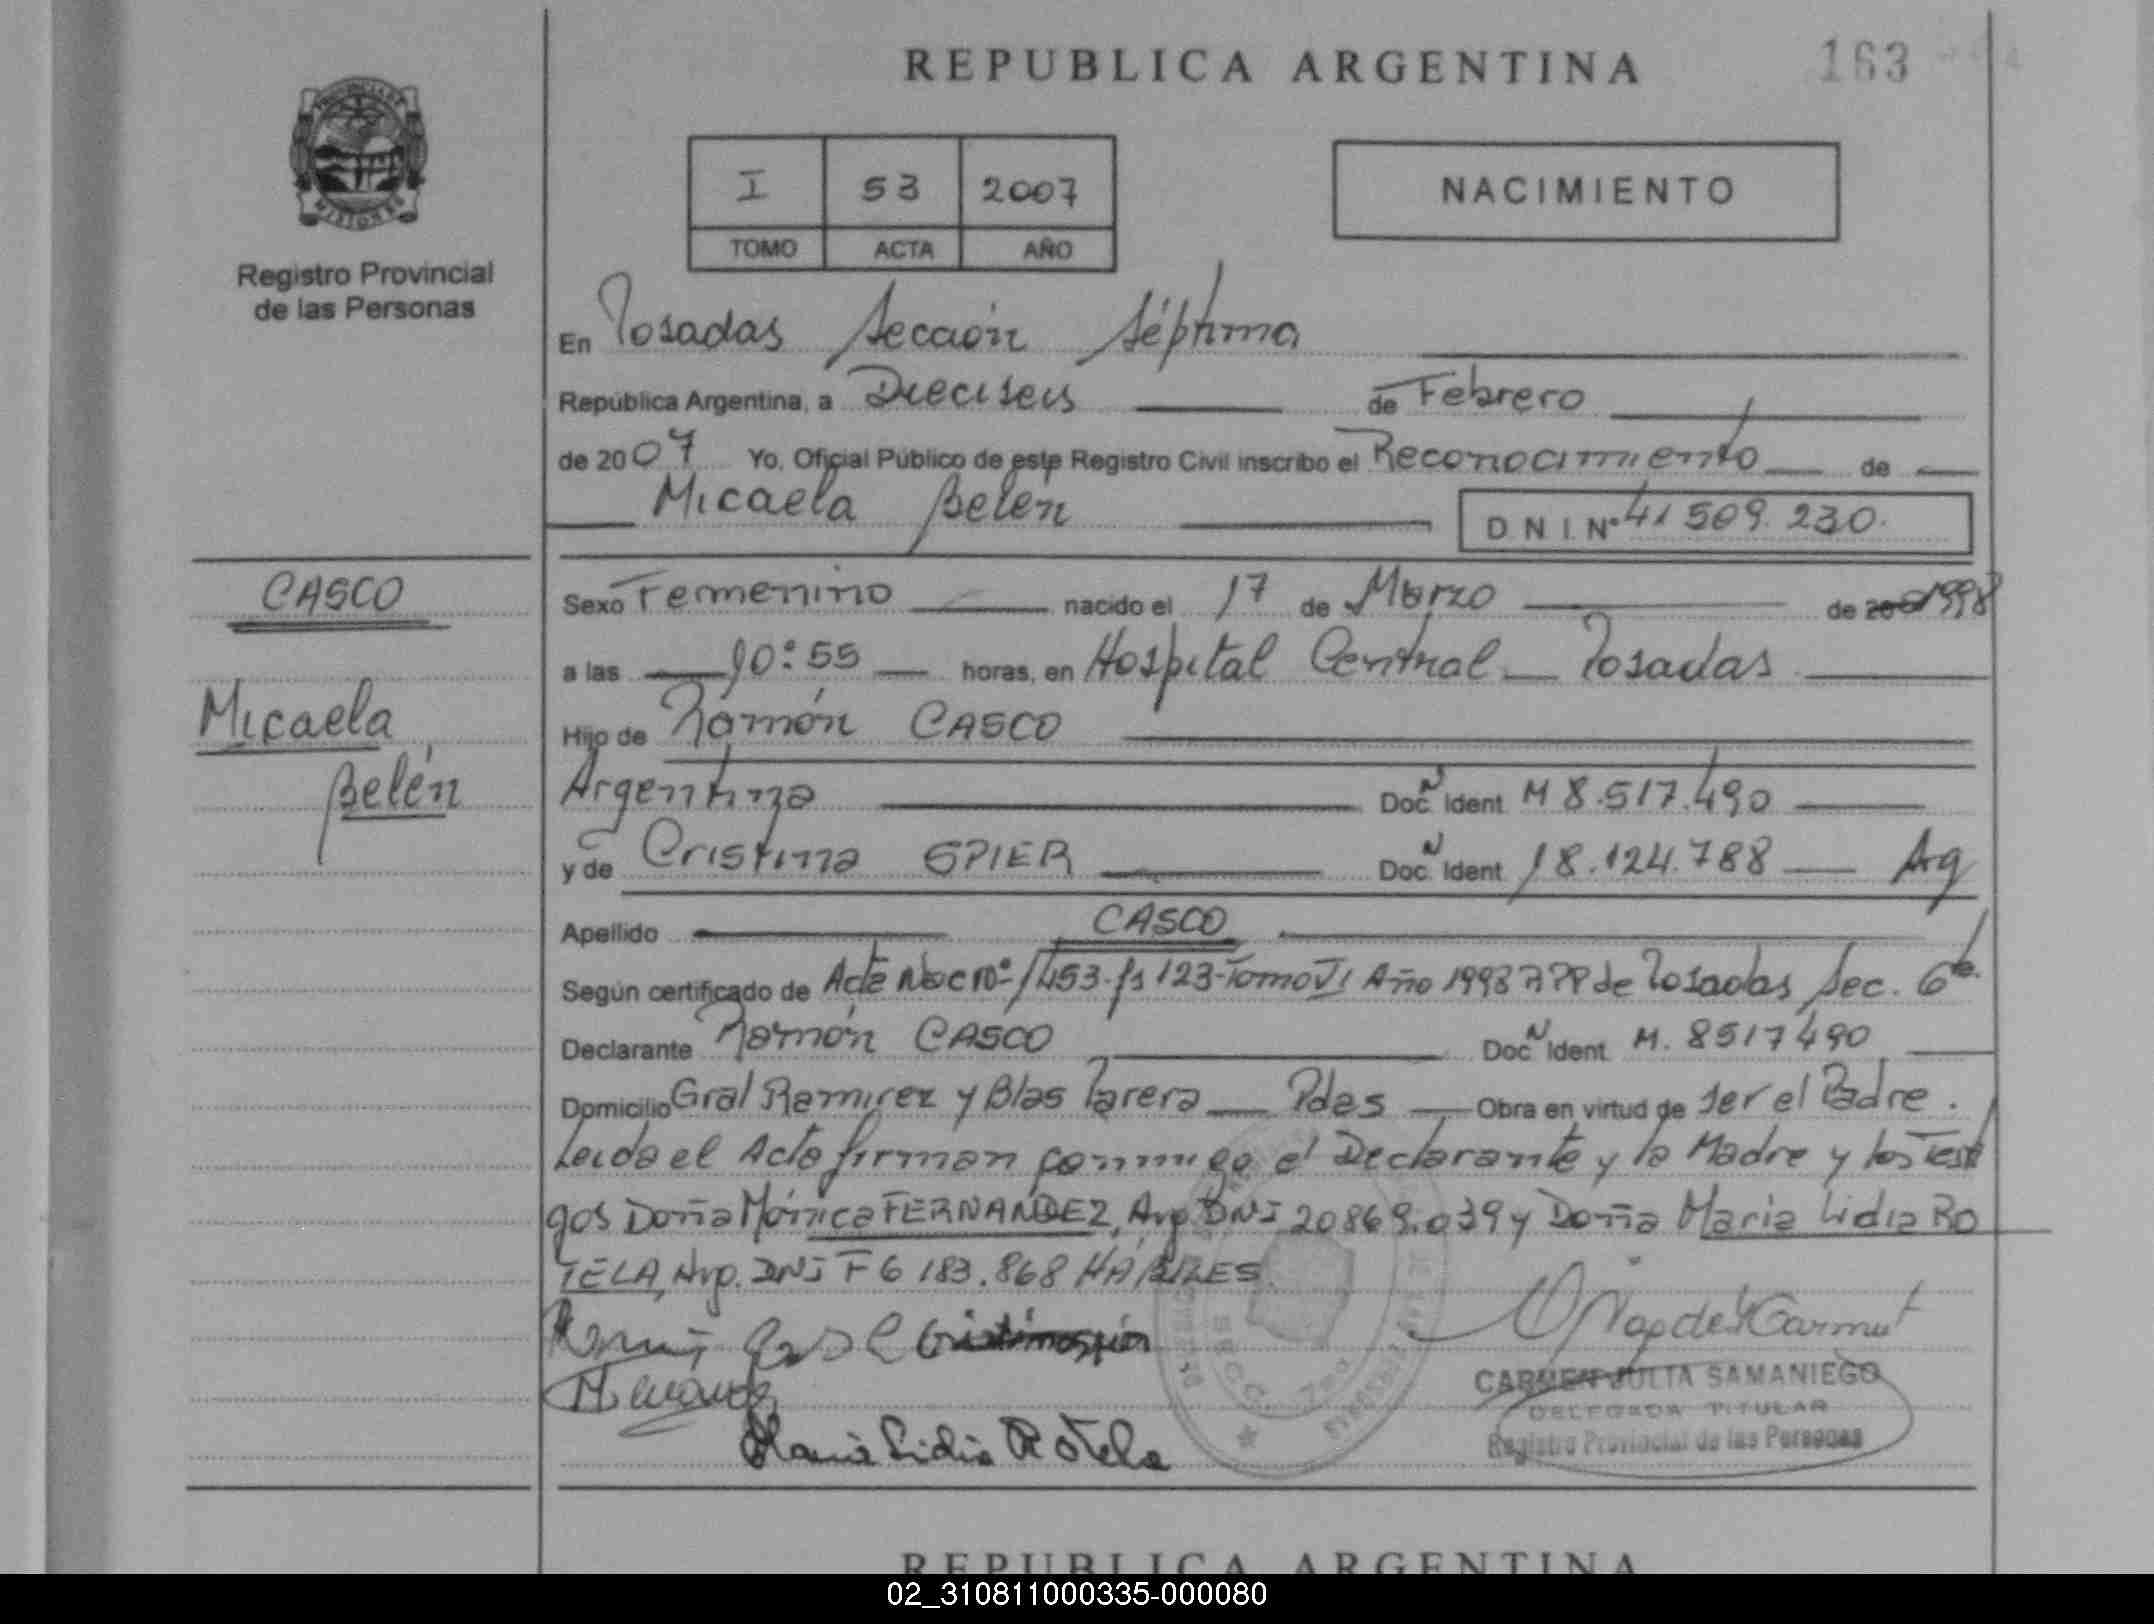 REPUBLICA ARGENTINA 163
I 53 2007
TOMO ACTA AÑO
NACIMIENTO
MISIONES
Registro Provincial
de las Personas
En Posadas Sección Séptima
República Argentina, a Dieciseis de Febrero
de 2007 Yo, Oficial Público de este Registro Civil inscribo el Reconocimiento de
Micaela Belén
D N I. Nº 41 509. 230.
CASCO
Micaela
Belén
Sexo Femenino nacido el 17 de Marzo de 1998
a las 10:55 horas, en Hospital Central Posadas
Hijo de Ramón CASCO
Argentina Doc. N Ident. M 8.517.490
y de Cristina SPIER Doc. N Ident. 18.124.788 Ag
Apellido CASCO
Según certificado de Acta Nac nº 1453. fs 123-Tomo VI Año 1998 RPP de Posadas Sec. 6ta.
Declarante Ramón CASCO Doc. N Ident. M. 8517490
Domicilio Gral Ramirez y Blas Parera Pdas Obra en virtud de ser el Padre.
Leida el Acta firman conmigo el Declarante y la Madre y los Testi
gos Doña Mónica FERNANDEZ, Arg. DNI 20869.039 y Doña Maria Lidia RO
TELA, Arg. DNI F 6 183.868 HÁBILES
Maria Lidia Rotela
CARMEN JULIA SAMANIEGO
DELEGADA TITULAR
Registro Provincial de las Personas
REPUBLICA ARGENTINA
02_310811000335-000080